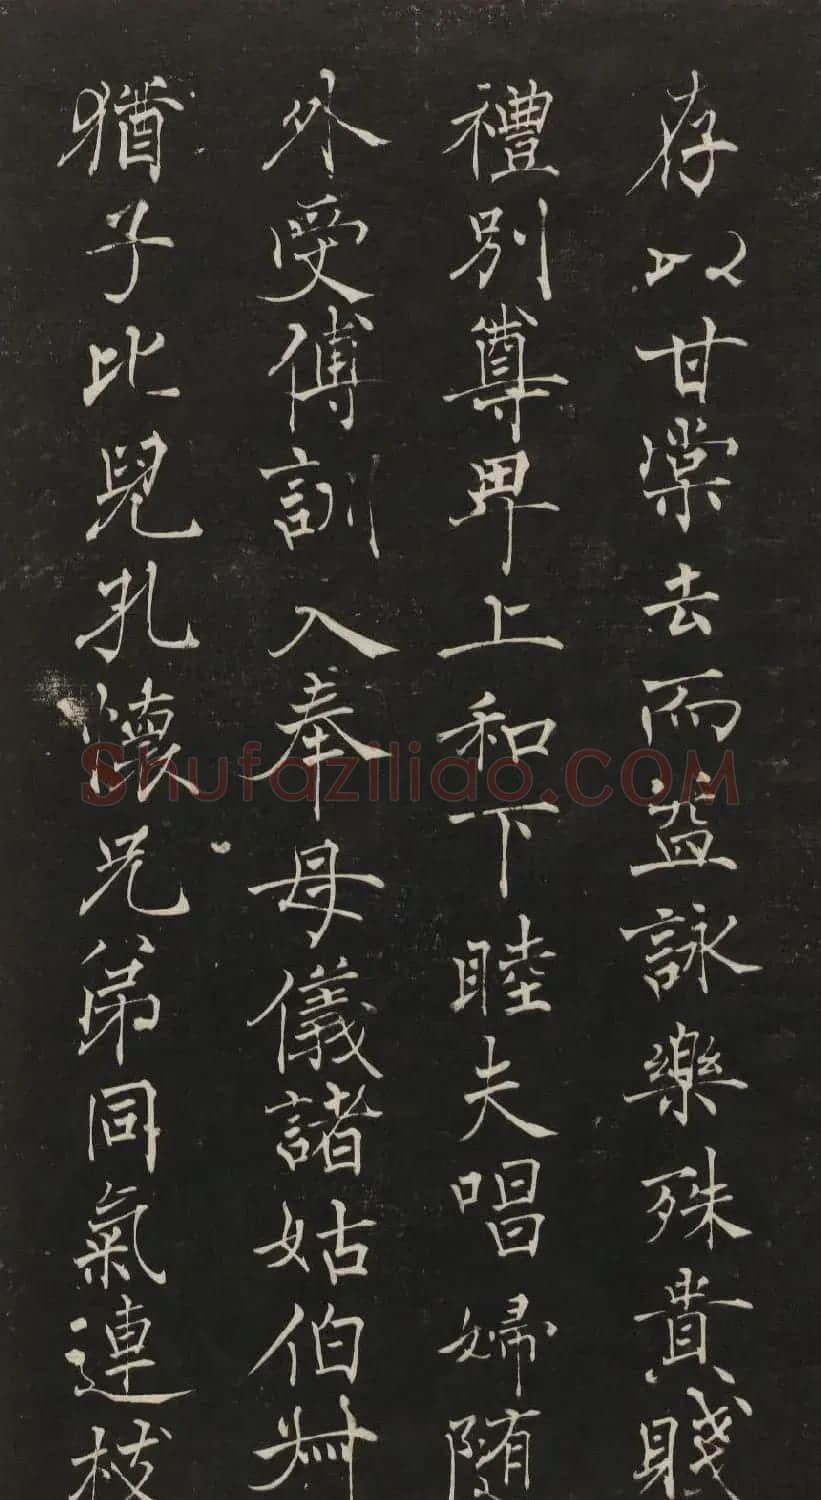 存以甘棠去而益詠樂殊貴賤
禮別尊卑上和下睦夫唱婦随
外受傅訓入奉母儀諸姑伯叔
猶子比兒孔懷兄弟同氣連枝
Shufaziliao.COM